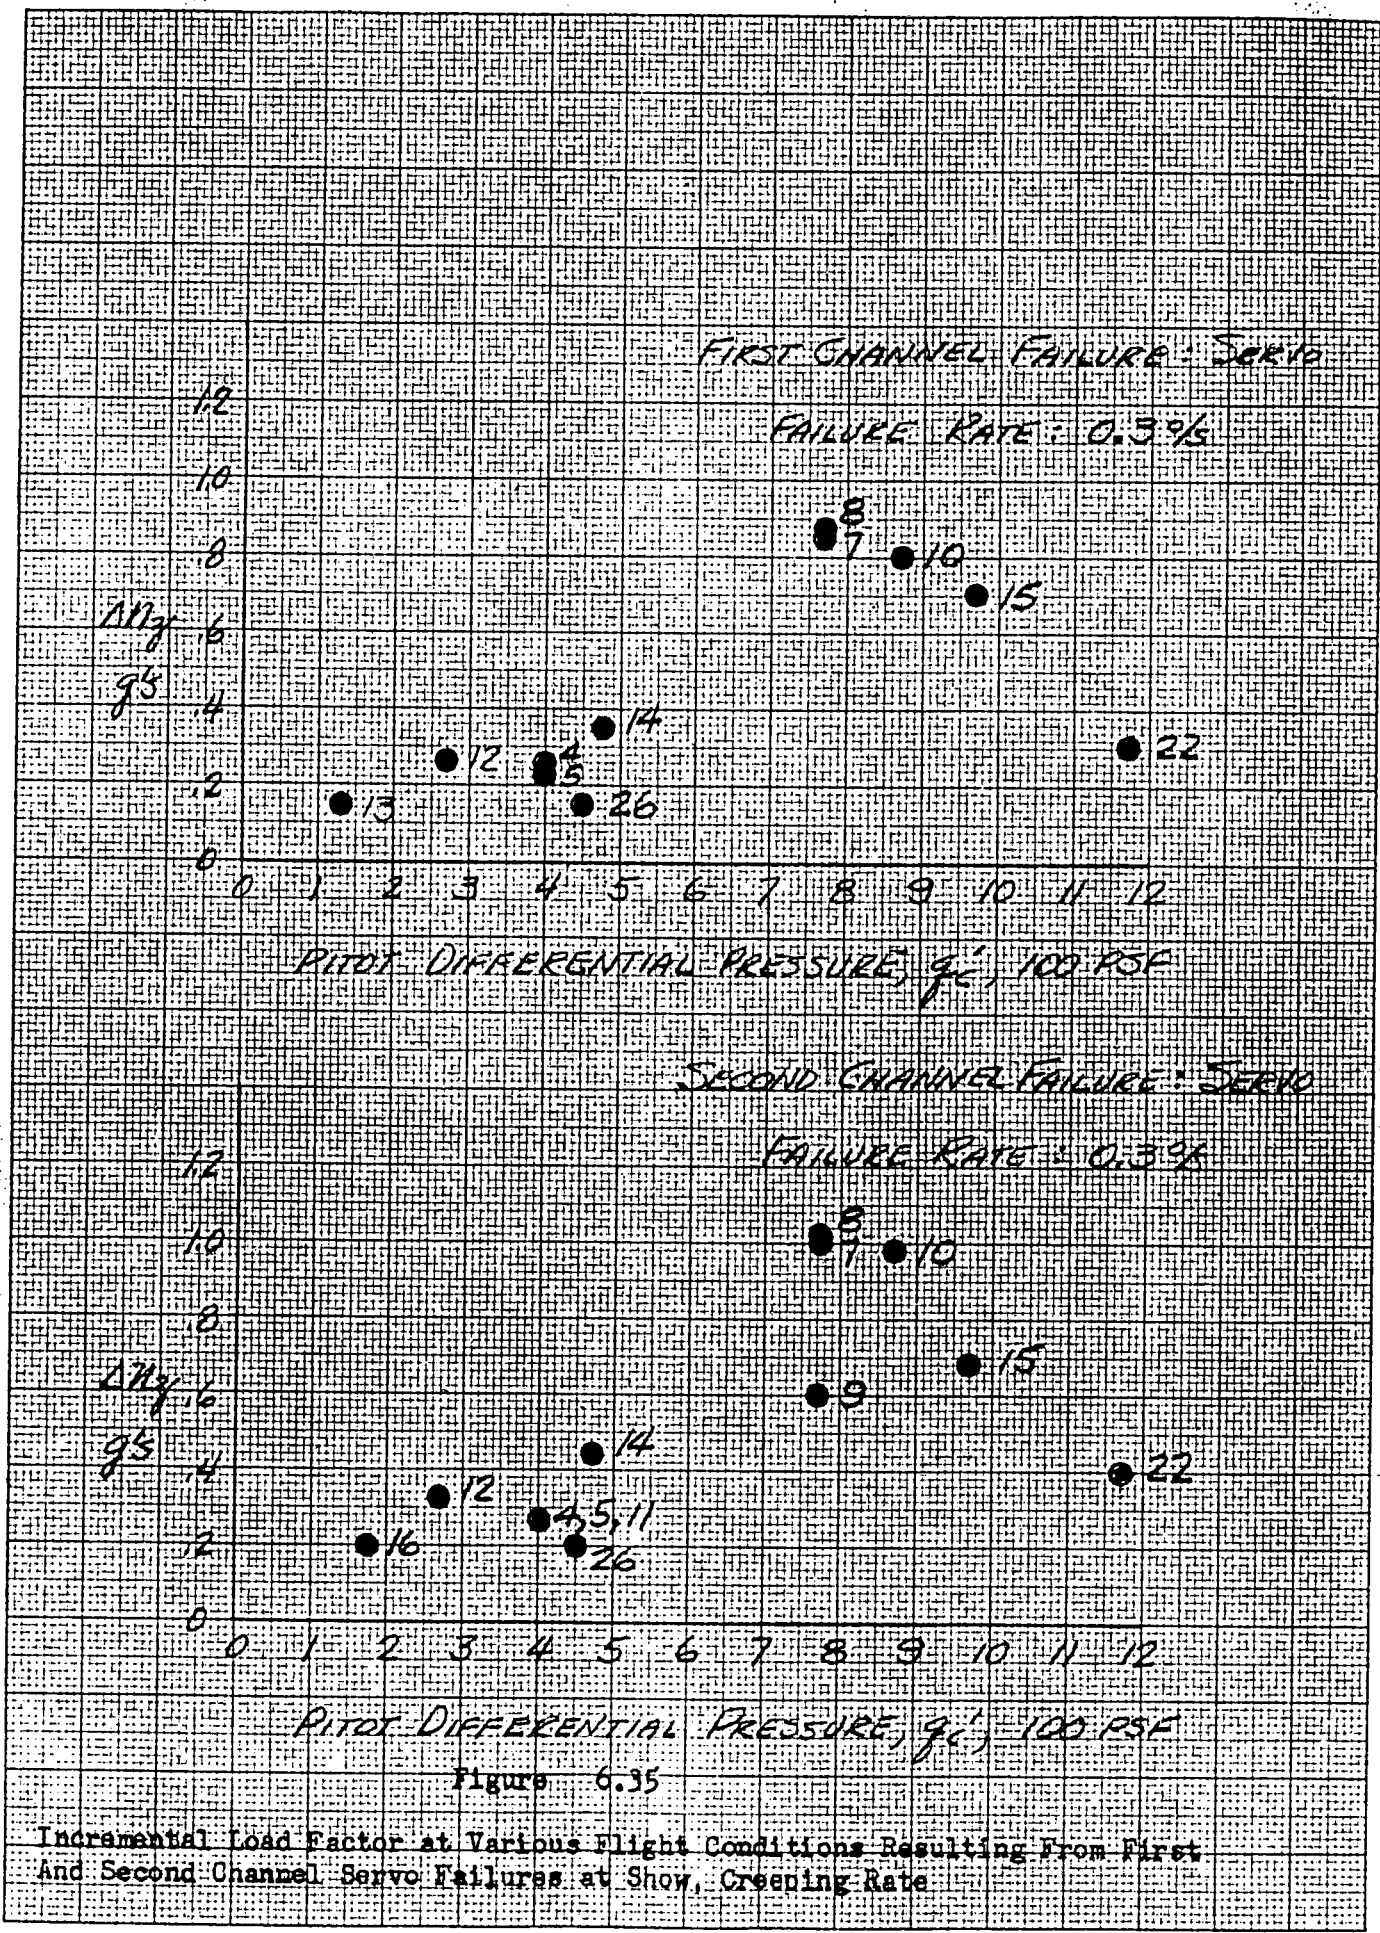 FIRST CHANNEL FAILURE: SERVO
FAILURE RATE: 0.3°/s
1.2
1.0
.8
.6
.4
.2
0
Δnz
g's
8
7
10
15
14
12
4
5
13
26
22
0 1 2 3 4 5 6 7 8 9 10 11 12
PITOT DIFFERENTIAL PRESSURE, qc', 100 PSF
SECOND CHANNEL FAILURE: SERVO
FAILURE RATE: 0.3°/s
1.2
1.0
.8
.6
.4
.2
0
Δnz
g's
8
7
10
15
9
14
12
4,5,11
16
26
22
0 1 2 3 4 5 6 7 8 9 10 11 12
PITOT DIFFERENTIAL PRESSURE, qc', 100 PSF
Figure 6.35
Incremental Load Factor at Various Flight Conditions Resulting From First
And Second Channel Servo Failures at Show, Creeping Rate